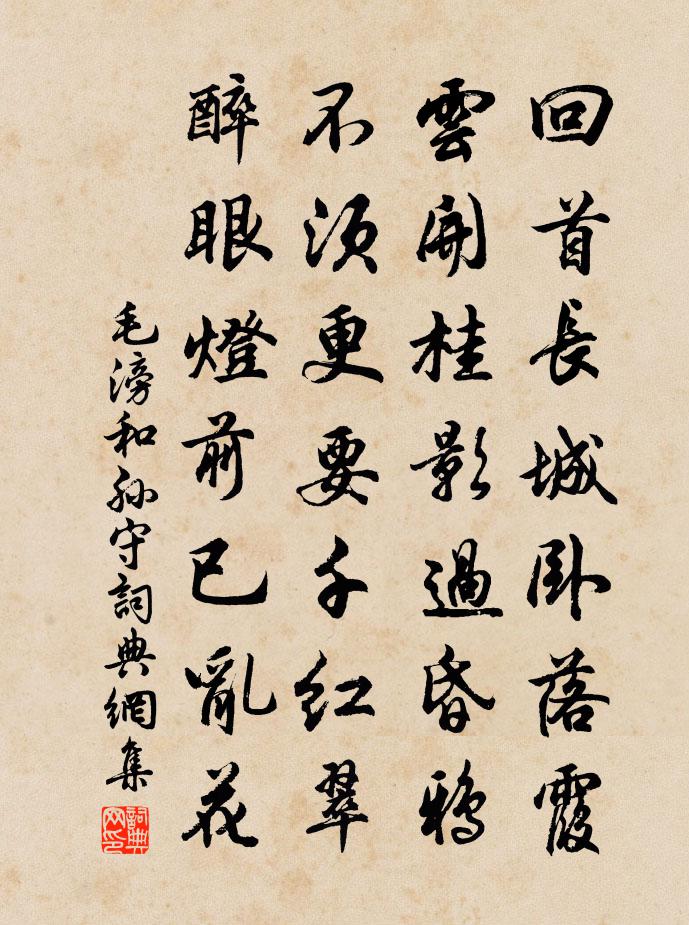 回首長城臥落霞
雲開桂影過昏鴉
不須更要千紅翠
醉眼燈前已亂花
毛滂和孫守詞典網集
詞典网印